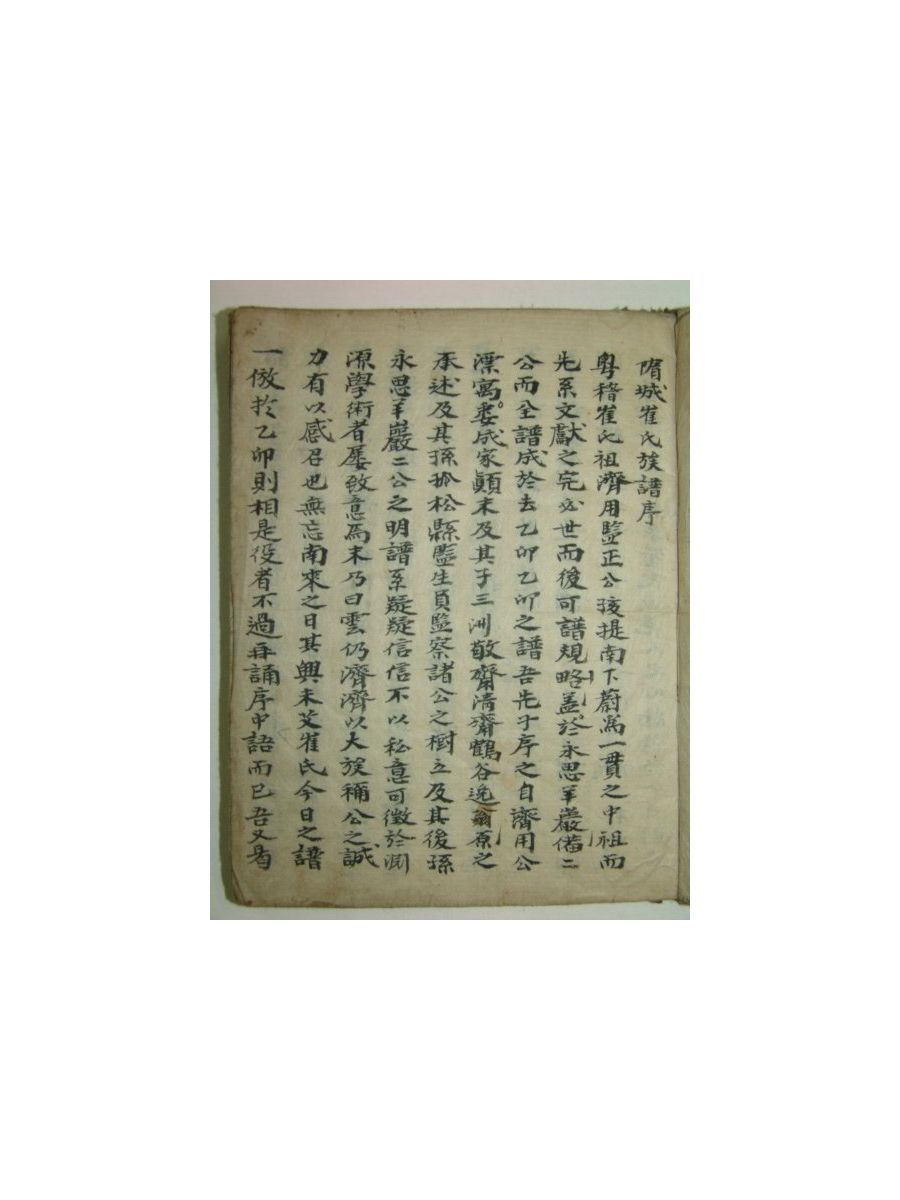 隋城崔氏族譜序
粤稽崔氏祖濟用監正公孩提南下蔚爲一貫之中祖而
先系文獻之完必世而後可譜規略盖於永思羊巖備二
公而全譜成於去乙卯乙卯之譜吾先子序之自濟用公
漂寓娄成家顚末及其子三洲敬齋淸齋鶴谷逸翁原之
承述及其孫孤松縣監生員監察諸公之樹立及其後孫
永思羊巖二公之明譜系疑疑信信不以私意可徵於淵
源學術者屡致意焉末乃曰雲仍濟濟以大族稱公之誠
力有以感召也無忘南來之日其興未艾崔氏今日之譜
一倣於乙卯則相是役者不過再誦序中語而已吾又曷